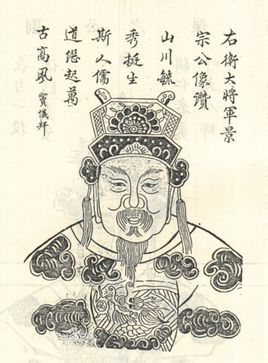 右衛大將軍景
宗公像讚
山川毓
秀挺生
斯人儒
道憑起萬
古高風 竇儀拜